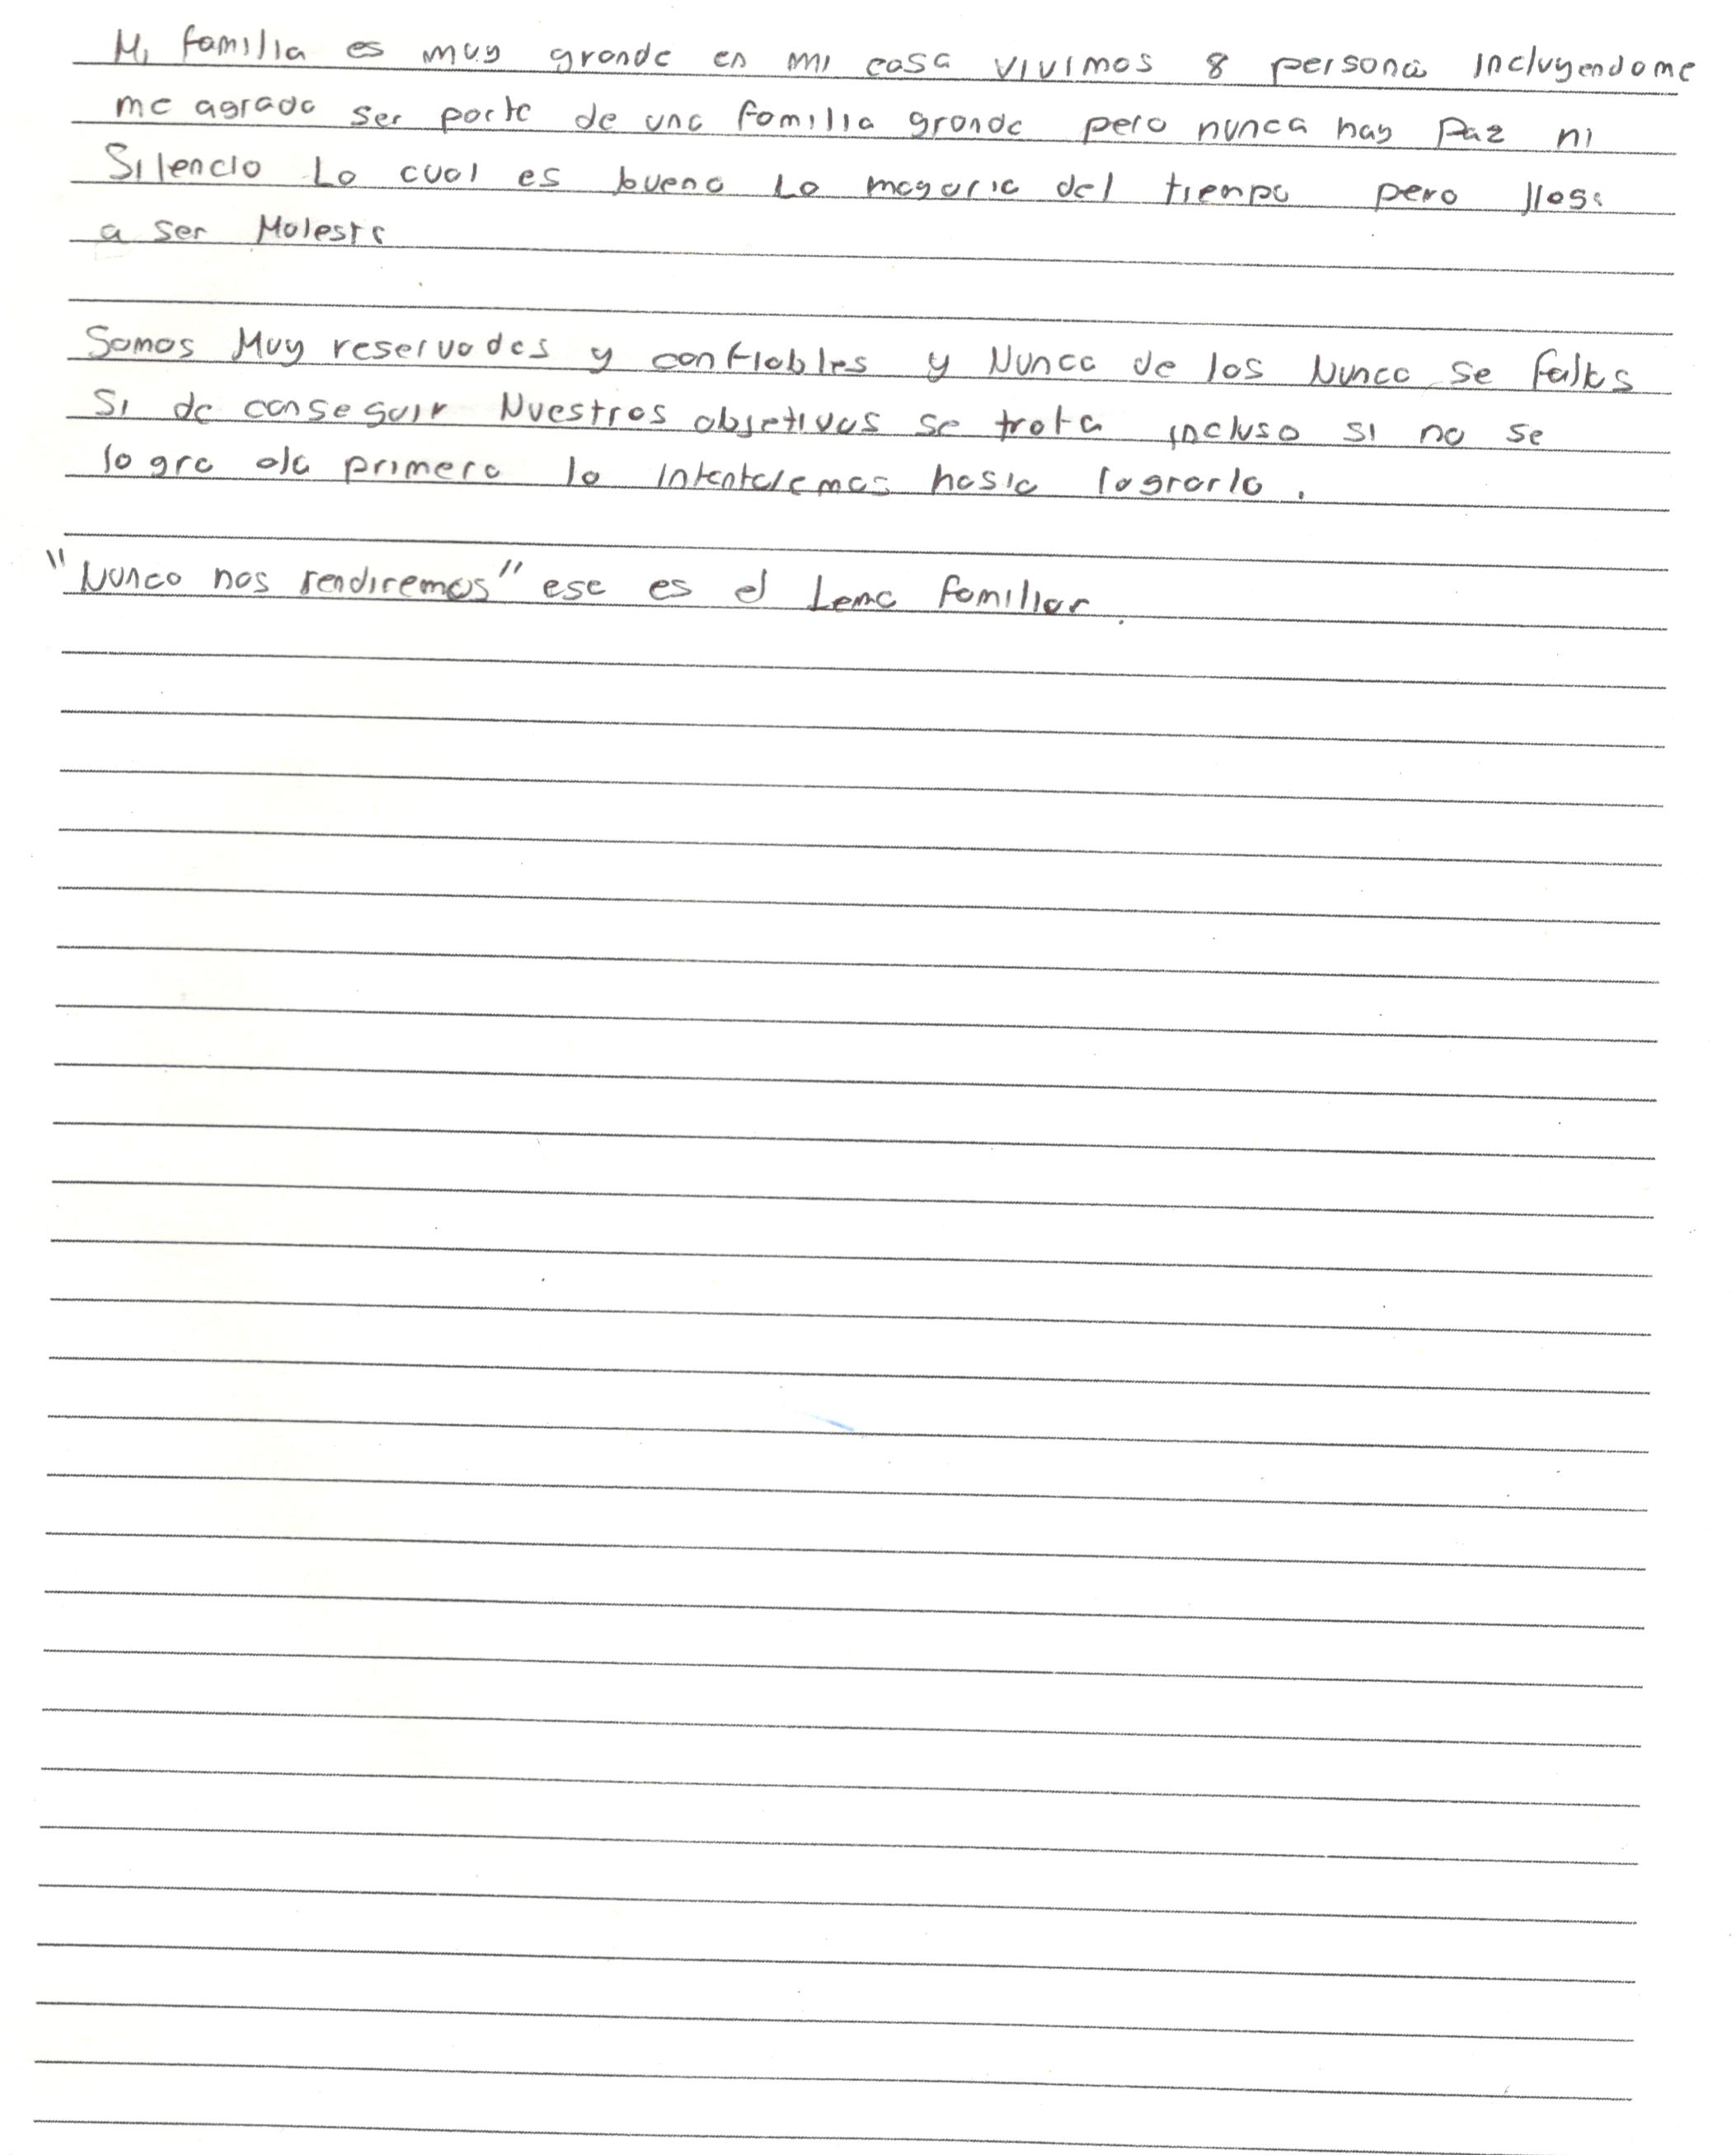 Mi familia es muy grande en mi casa vivimos 8 persona incluyendome
me agrada ser parte de una familia grande pero nunca hay Paz ni
Silencio Lo cual es bueno La mayoria del tiempo pero
a ser Molesto
Somos Muy reservados y confiables y Nunca de los Nunca se
Si de conseguir Nuestros objetivos se trata incluso si no se
logra ala primera lo intentaremos hasta lograrlo.
"Nunca nos rendiremos" ese es el Lema familiar.